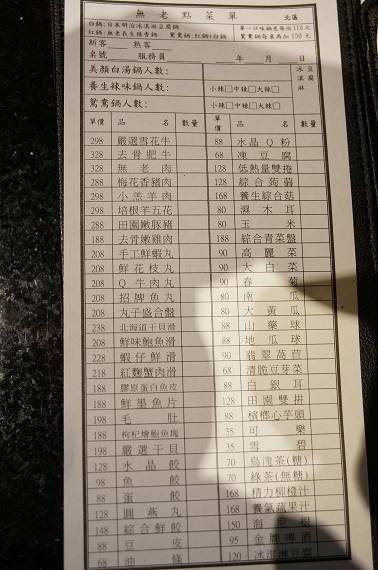 無老點菜單
北區
白鍋:日本明治冰淇淋豆腐鍋
紅鍋:無老長生辣香鍋 鴛鴦鍋:紅鍋+白鍋
第一口味鍋底每位110元
鴛鴦鍋每桌再加150元
新客 熟客
桌號 服務員 年 月 日
美顏白湯鍋人數:
養生辣味鍋人數: 小辣□中辣□大辣□
鴛鴦鍋人數: 小辣□中辣□大辣□
冰淇淋豆腐
單價 品名 數量 單價 品名 數量
298 嚴選雪花牛 88 水晶Q粉
328 去骨肥牛 68 凍豆腐
328 無老肉 128 低熱量雙捲
288 梅花香豬肉 128 綜合蒟蒻
298 小羔羊肉 168 養生綜合菇
298 培根羊五花 80 濕木耳
288 田園嫩豚豬 80 玉米
188 去骨嫩雞肉 188 綜合青菜盤
208 手工鮮蝦丸 90 高麗菜
208 鮮花枝丸 90 大白菜
208 Q牛肉丸 90 春菊
208 招牌魚丸 80 南瓜
208 丸子盛合盤 80 大黃瓜
238 北海道干貝滑 88 山藥球
208 鮮味鮑魚滑 88 地瓜球
228 蝦仔鮮滑 90 翡翠萵苣
218 紅麴蟹肉滑 68 清脆豆芽菜
188 膠原蛋白魚皮 88 白銀耳
188 鮮墨魚片 128 田園雙拼
198 毛肚 88 檳榔心芋頭
188 枸杞燴鮑魚塊 35 可樂
198 嚴選干貝 35 雪碧
128 水晶餃 70 烏龍茶(無糖)
98 魚餃 70 綠茶(無糖)
88 蛋餃 168 精力柳橙汁
128 圓燕丸 168 養氣蔬果汁
148 綜合鮮餃 150 海尼根
88 豆皮 95 金牌啤酒
68 油條 120 冰淇淋豆腐